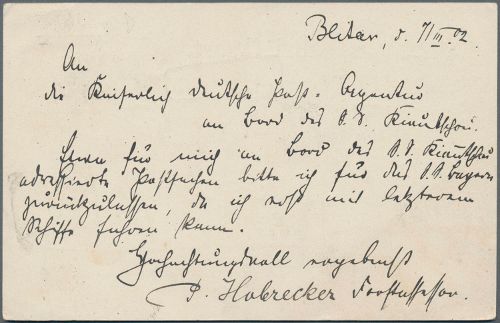 Blitar, d. 7/III.02
An
die Kaiserlich Deutsche Post-Agentur
an Bord des S.S. Kiautschou.
Etwa für mich an Bord des S.S. Kiautschou
adressierte Postsachen bitte ich für das S.S. Bayern
zurückzulassen, da ich erst mit letzterem
Schiffe fahren kann.
Hochachtungsvoll ergebenst
P. Habrecker Forstassessor.